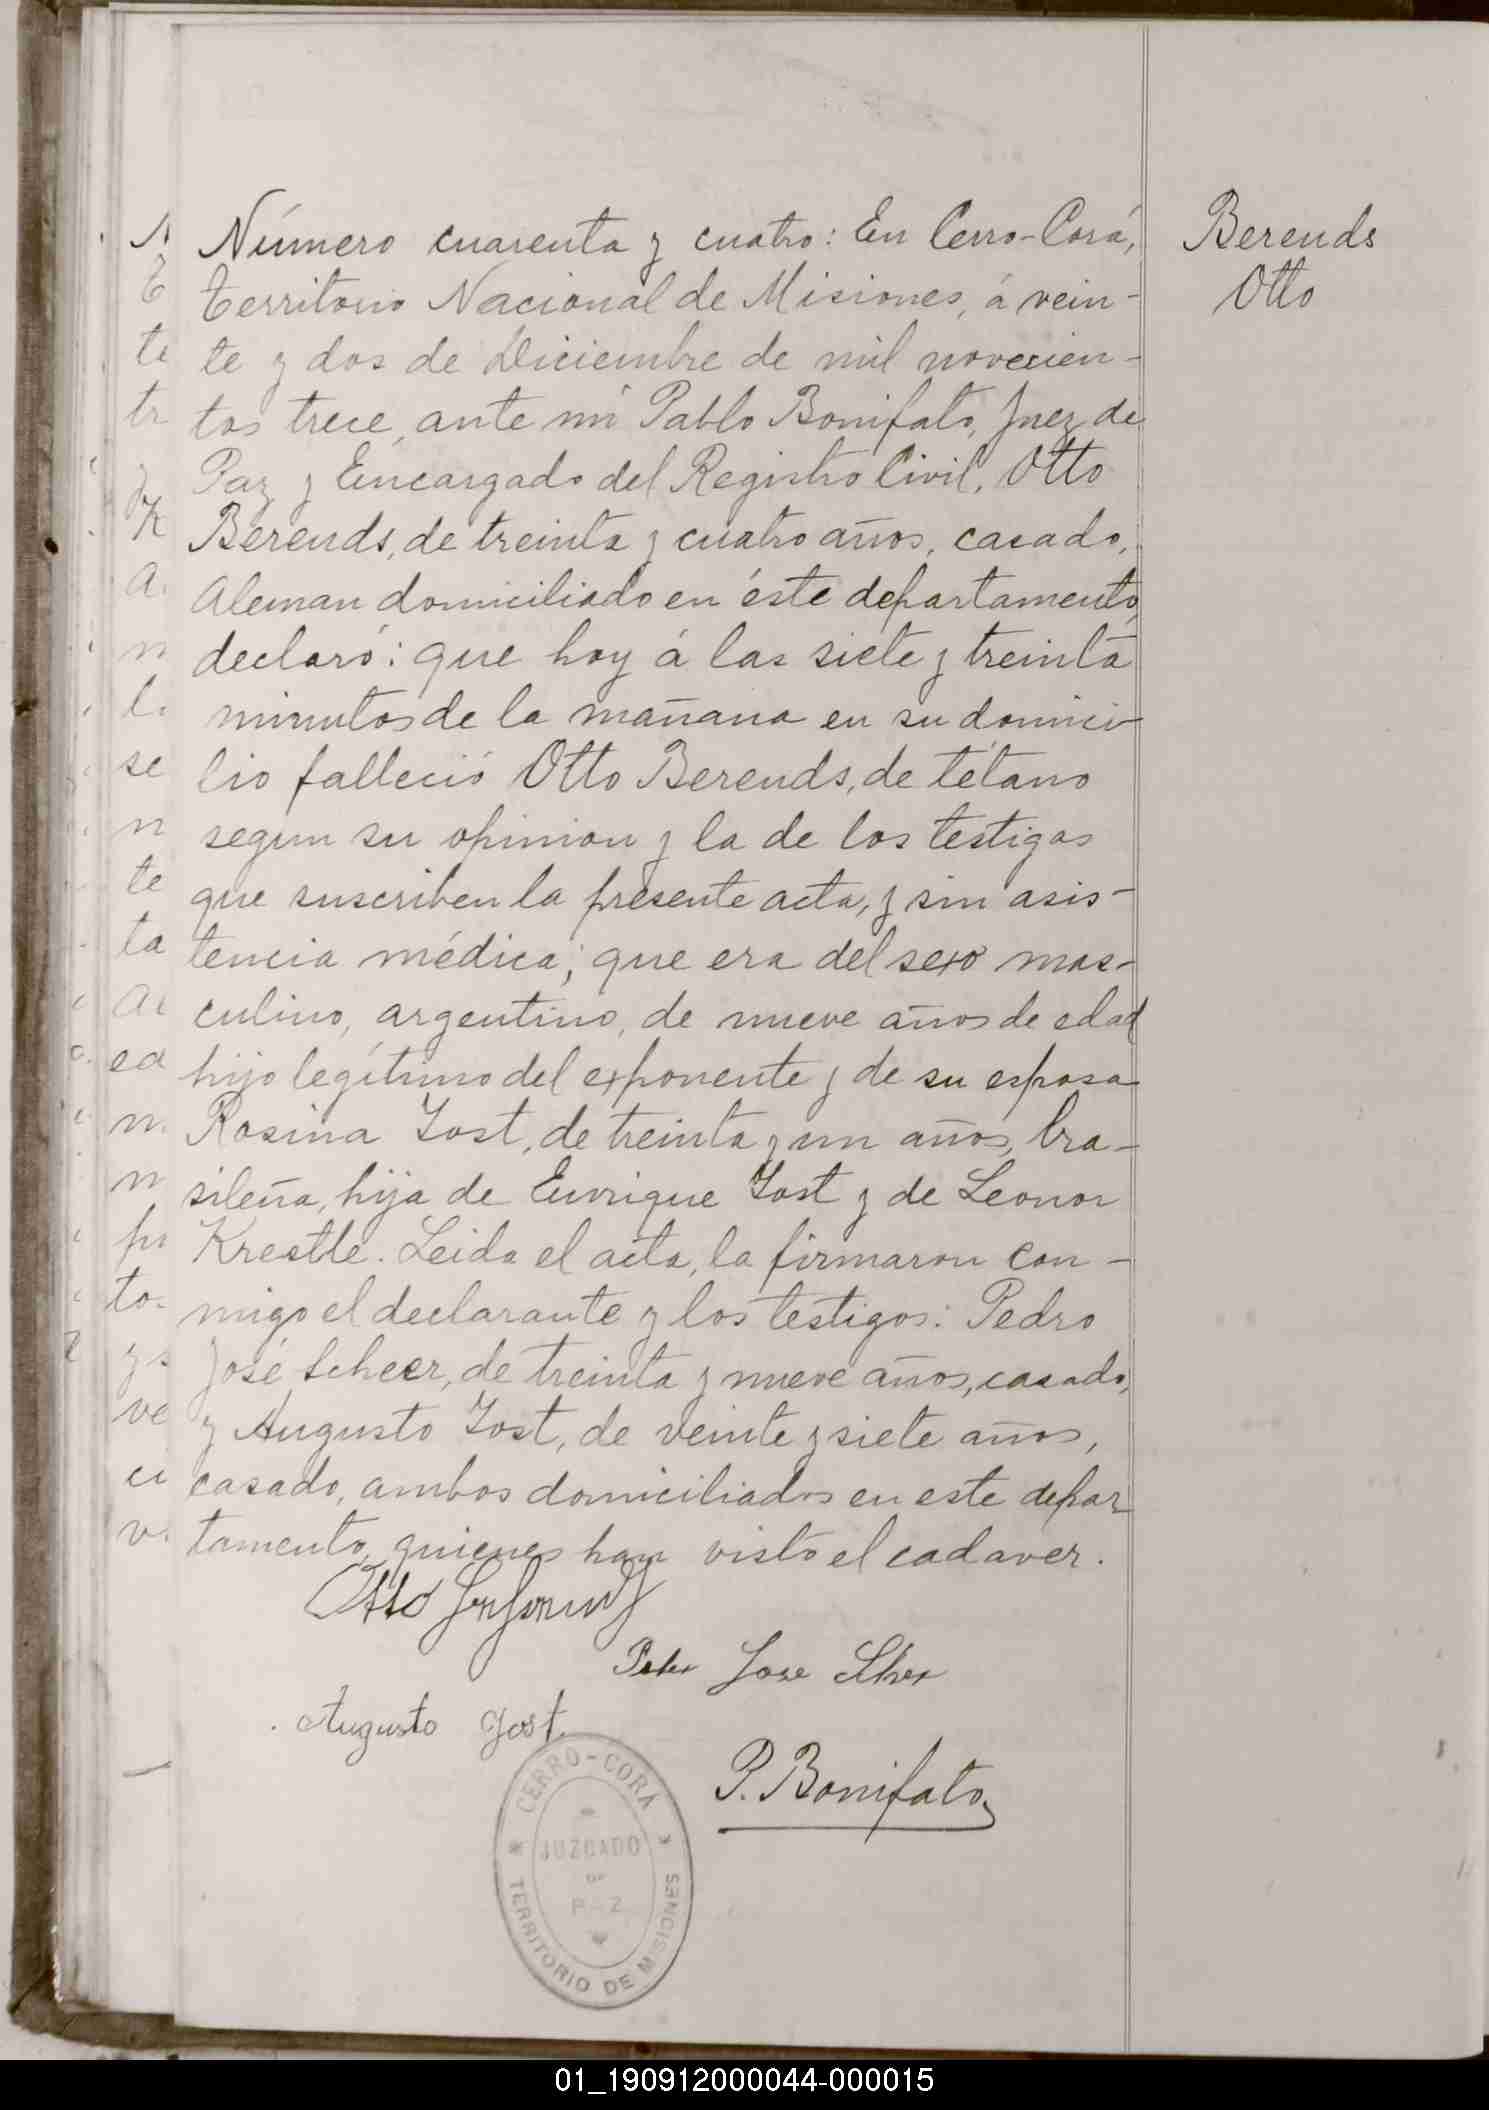 Número cuarenta y cuatro: En Cerro-Corá,
territorio Nacional de Misiones, á vein-
te y dos de Diciembre de mil novecien-
tos trece, ante mi Pablo Bonifato, Juez de
Paz y Encargado del Registro Civil, Otto
Berends, de treinta y cuatro años, casado,
Aleman domiciliado en éste departamento,
declaró: que hoy á las siete y treinta
minutos de la mañana en su domici-
lio falleció Otto Berends, de tétano
segun su opinion y la de los testigos
que suscriben la presente acta, y sin asis-
tencia médica; que era del sexo mas-
culino, argentino, de nueve años de edad
hijo legítimo del exponente y de su esposa
Rosina Jost, de treinta y un años, bra-
sileña, hija de Enrique Jost y de Leonor
Krestle. Leida el acta, la firmaron con-
migo el declarante y los testigos: Pedro
José Scheer, de treinta y nueve años, casado,
y Augusto Jost, de veinte y siete años,
casado, ambos domiciliados en este depar
tamento, quienes han visto el cadaver.
Berends
Otto
Otto
Peter Jose
Augusto Jost
P. Bonifato
CERRO-CORÁ
JUZGADO
DE
P Z
TERRITORIO DE MISIONES
01_190912000044-000015